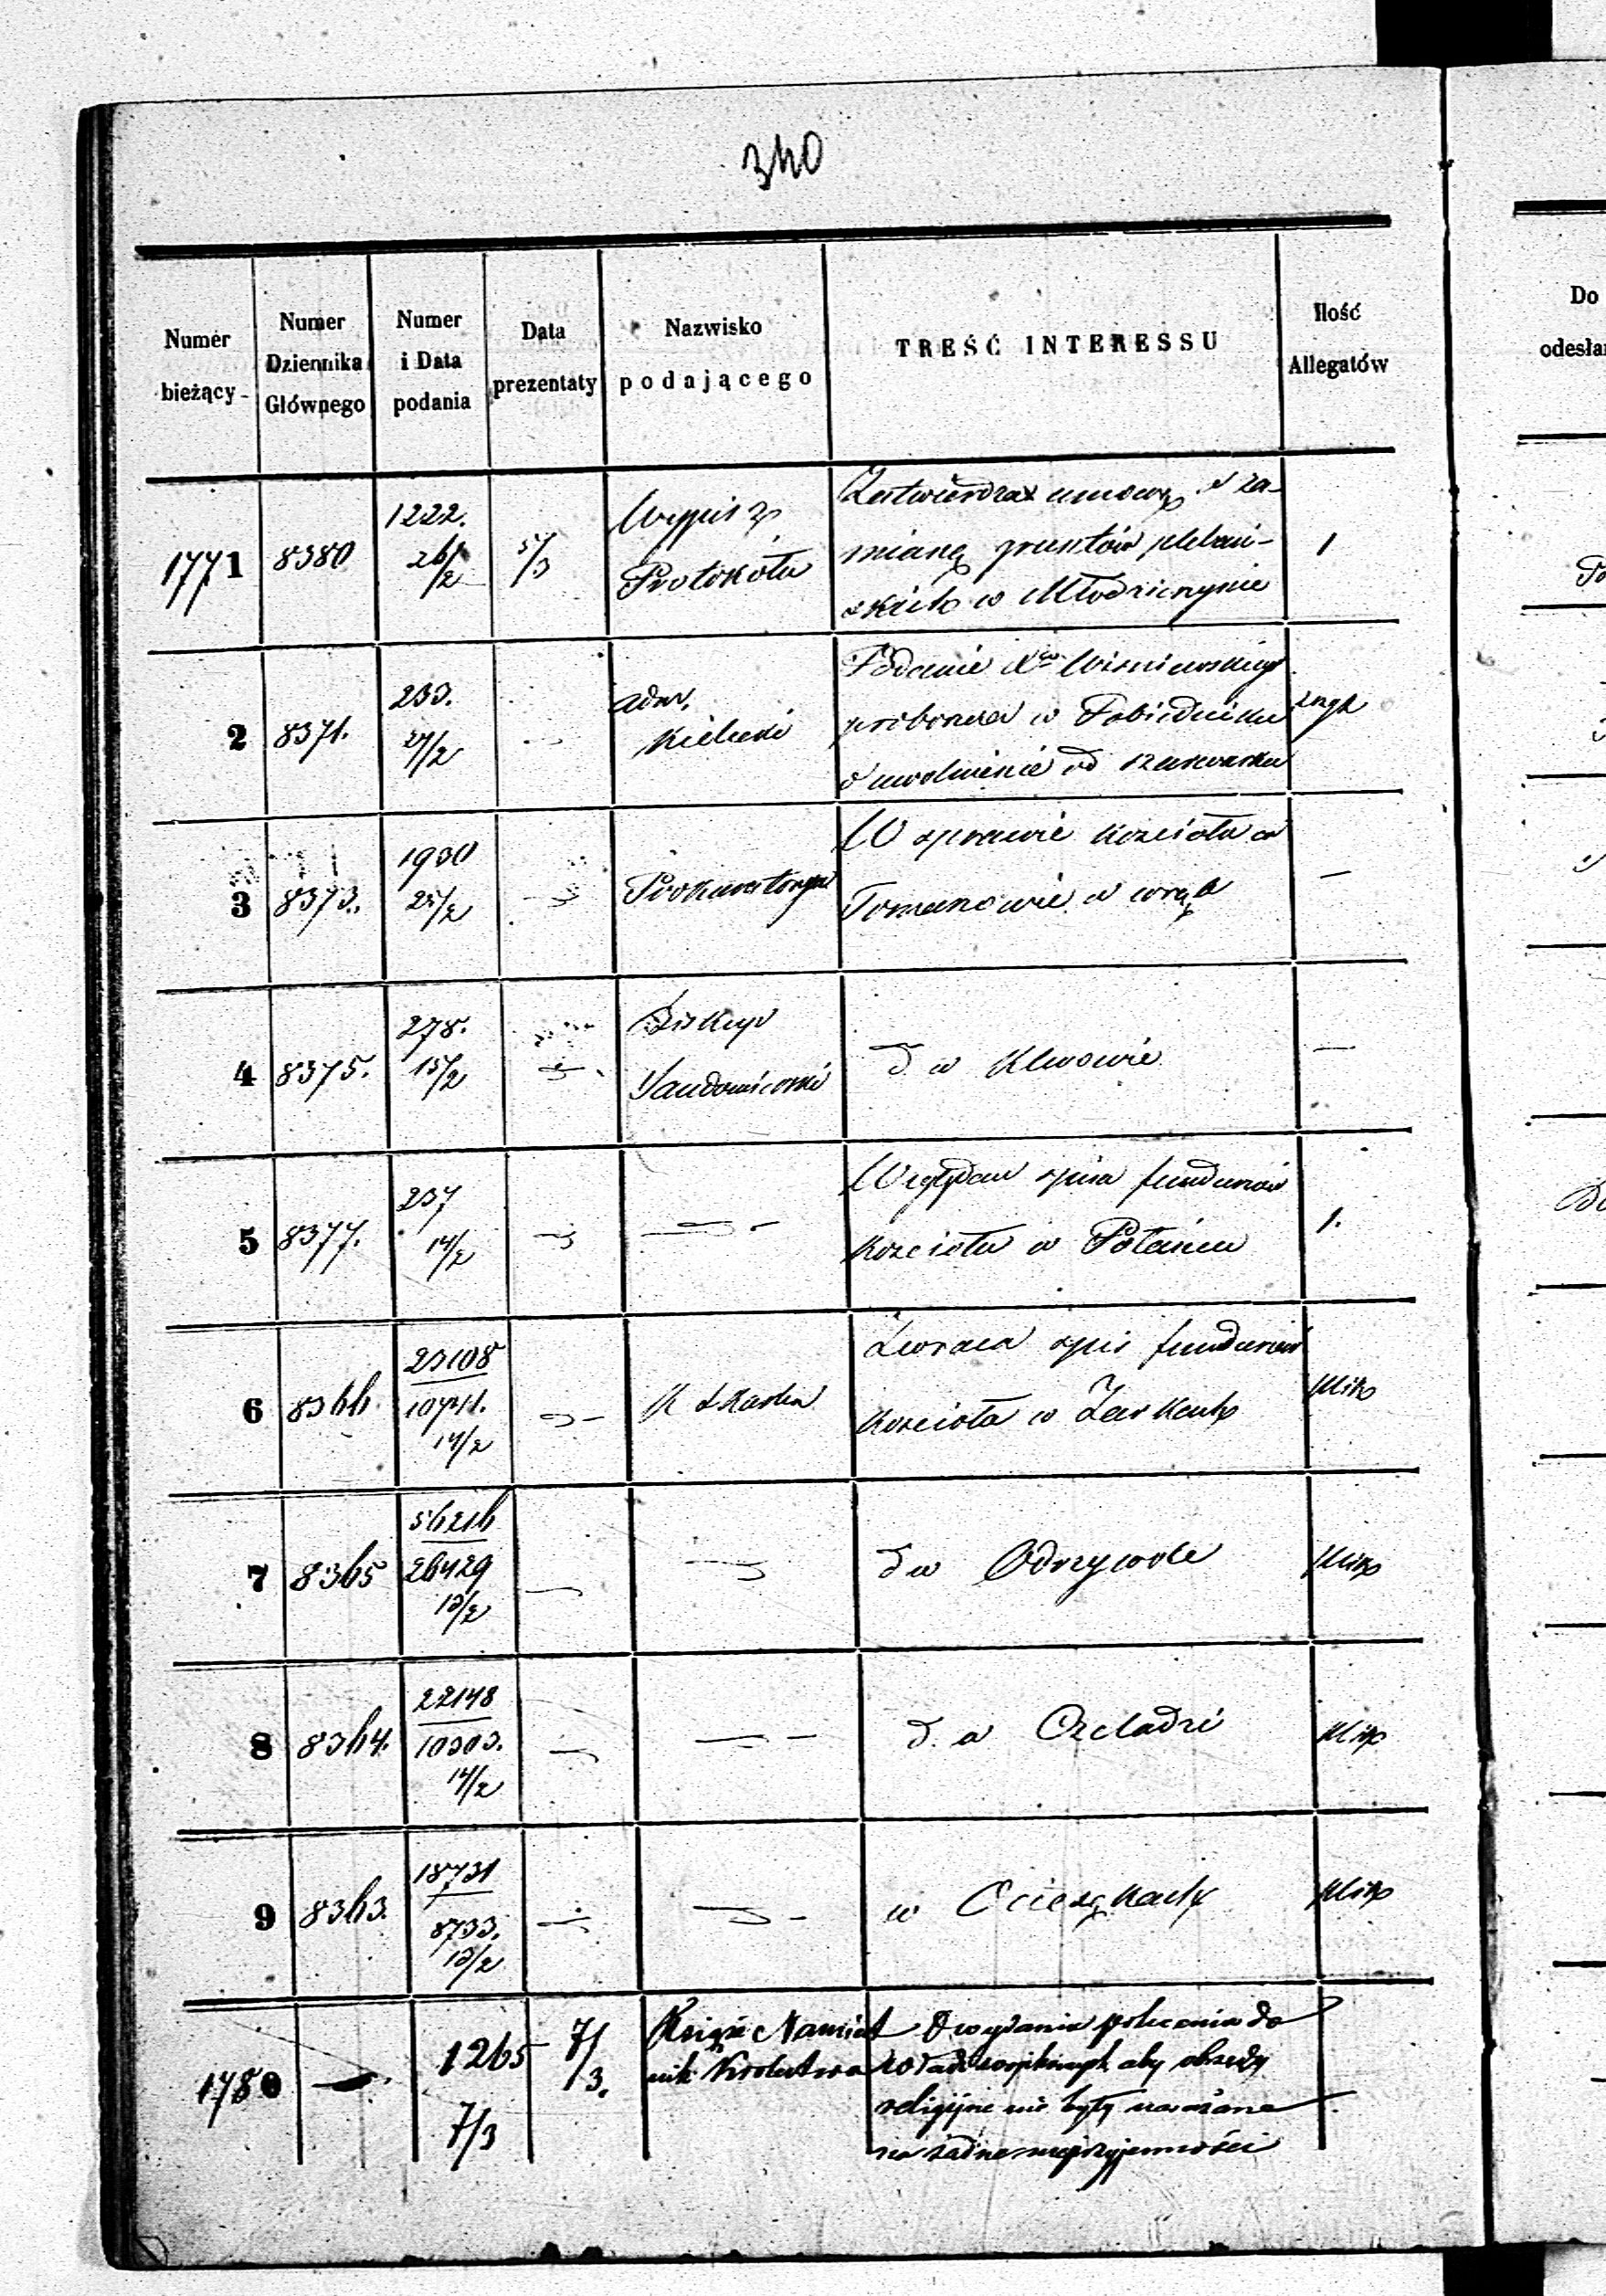 340
Numer bieżący
Numer Dziennika Głównego
Numer i Data podania
Data prezentaty
Nazwisko podającego
TREŚĆ INTERESSU
Ilość Allegatów
Do
odesła
1771 8380 1222. 26/2 5/3 Wypis z Protokółu
Zatwierdza umowę o za-
mianę gruntów plebań-
skich w Młodzieszynie
1
2 8371. 233. 27/2 Adm. Kielecki
Podanie Xa Wisniewskiego
proboszcza w Pobiedniku
o uwolnienie od szarwarku
3 8373. 1930 25/2 Prokuratorya
W sprawie kościoła w
Tomanowie o
—
4 8375. 278. 15/2 Biskup Sandomierski
d w Klwowie
—
5 8377. 237 14/2
spisu funduszów
kościoła w Połańcu
1.
6 8366. 23108 10741. 14/2
Zwraca spis funduszów
kościoła w Żarkach
7 8365 56216 26429 13/2
d w Odrzywole
8 8364. 22148 10303. 14/2
d. w Czeladzi
9 8363. 18731 8733. 13/2
w Ociesękach
1780 — 1265 7/3 7/3. Książe Namiest
nik Królestwa
O wydanie polecenia do
władz aby obrzędy
religijne nie były narażane
na żadne nieprzyjemności